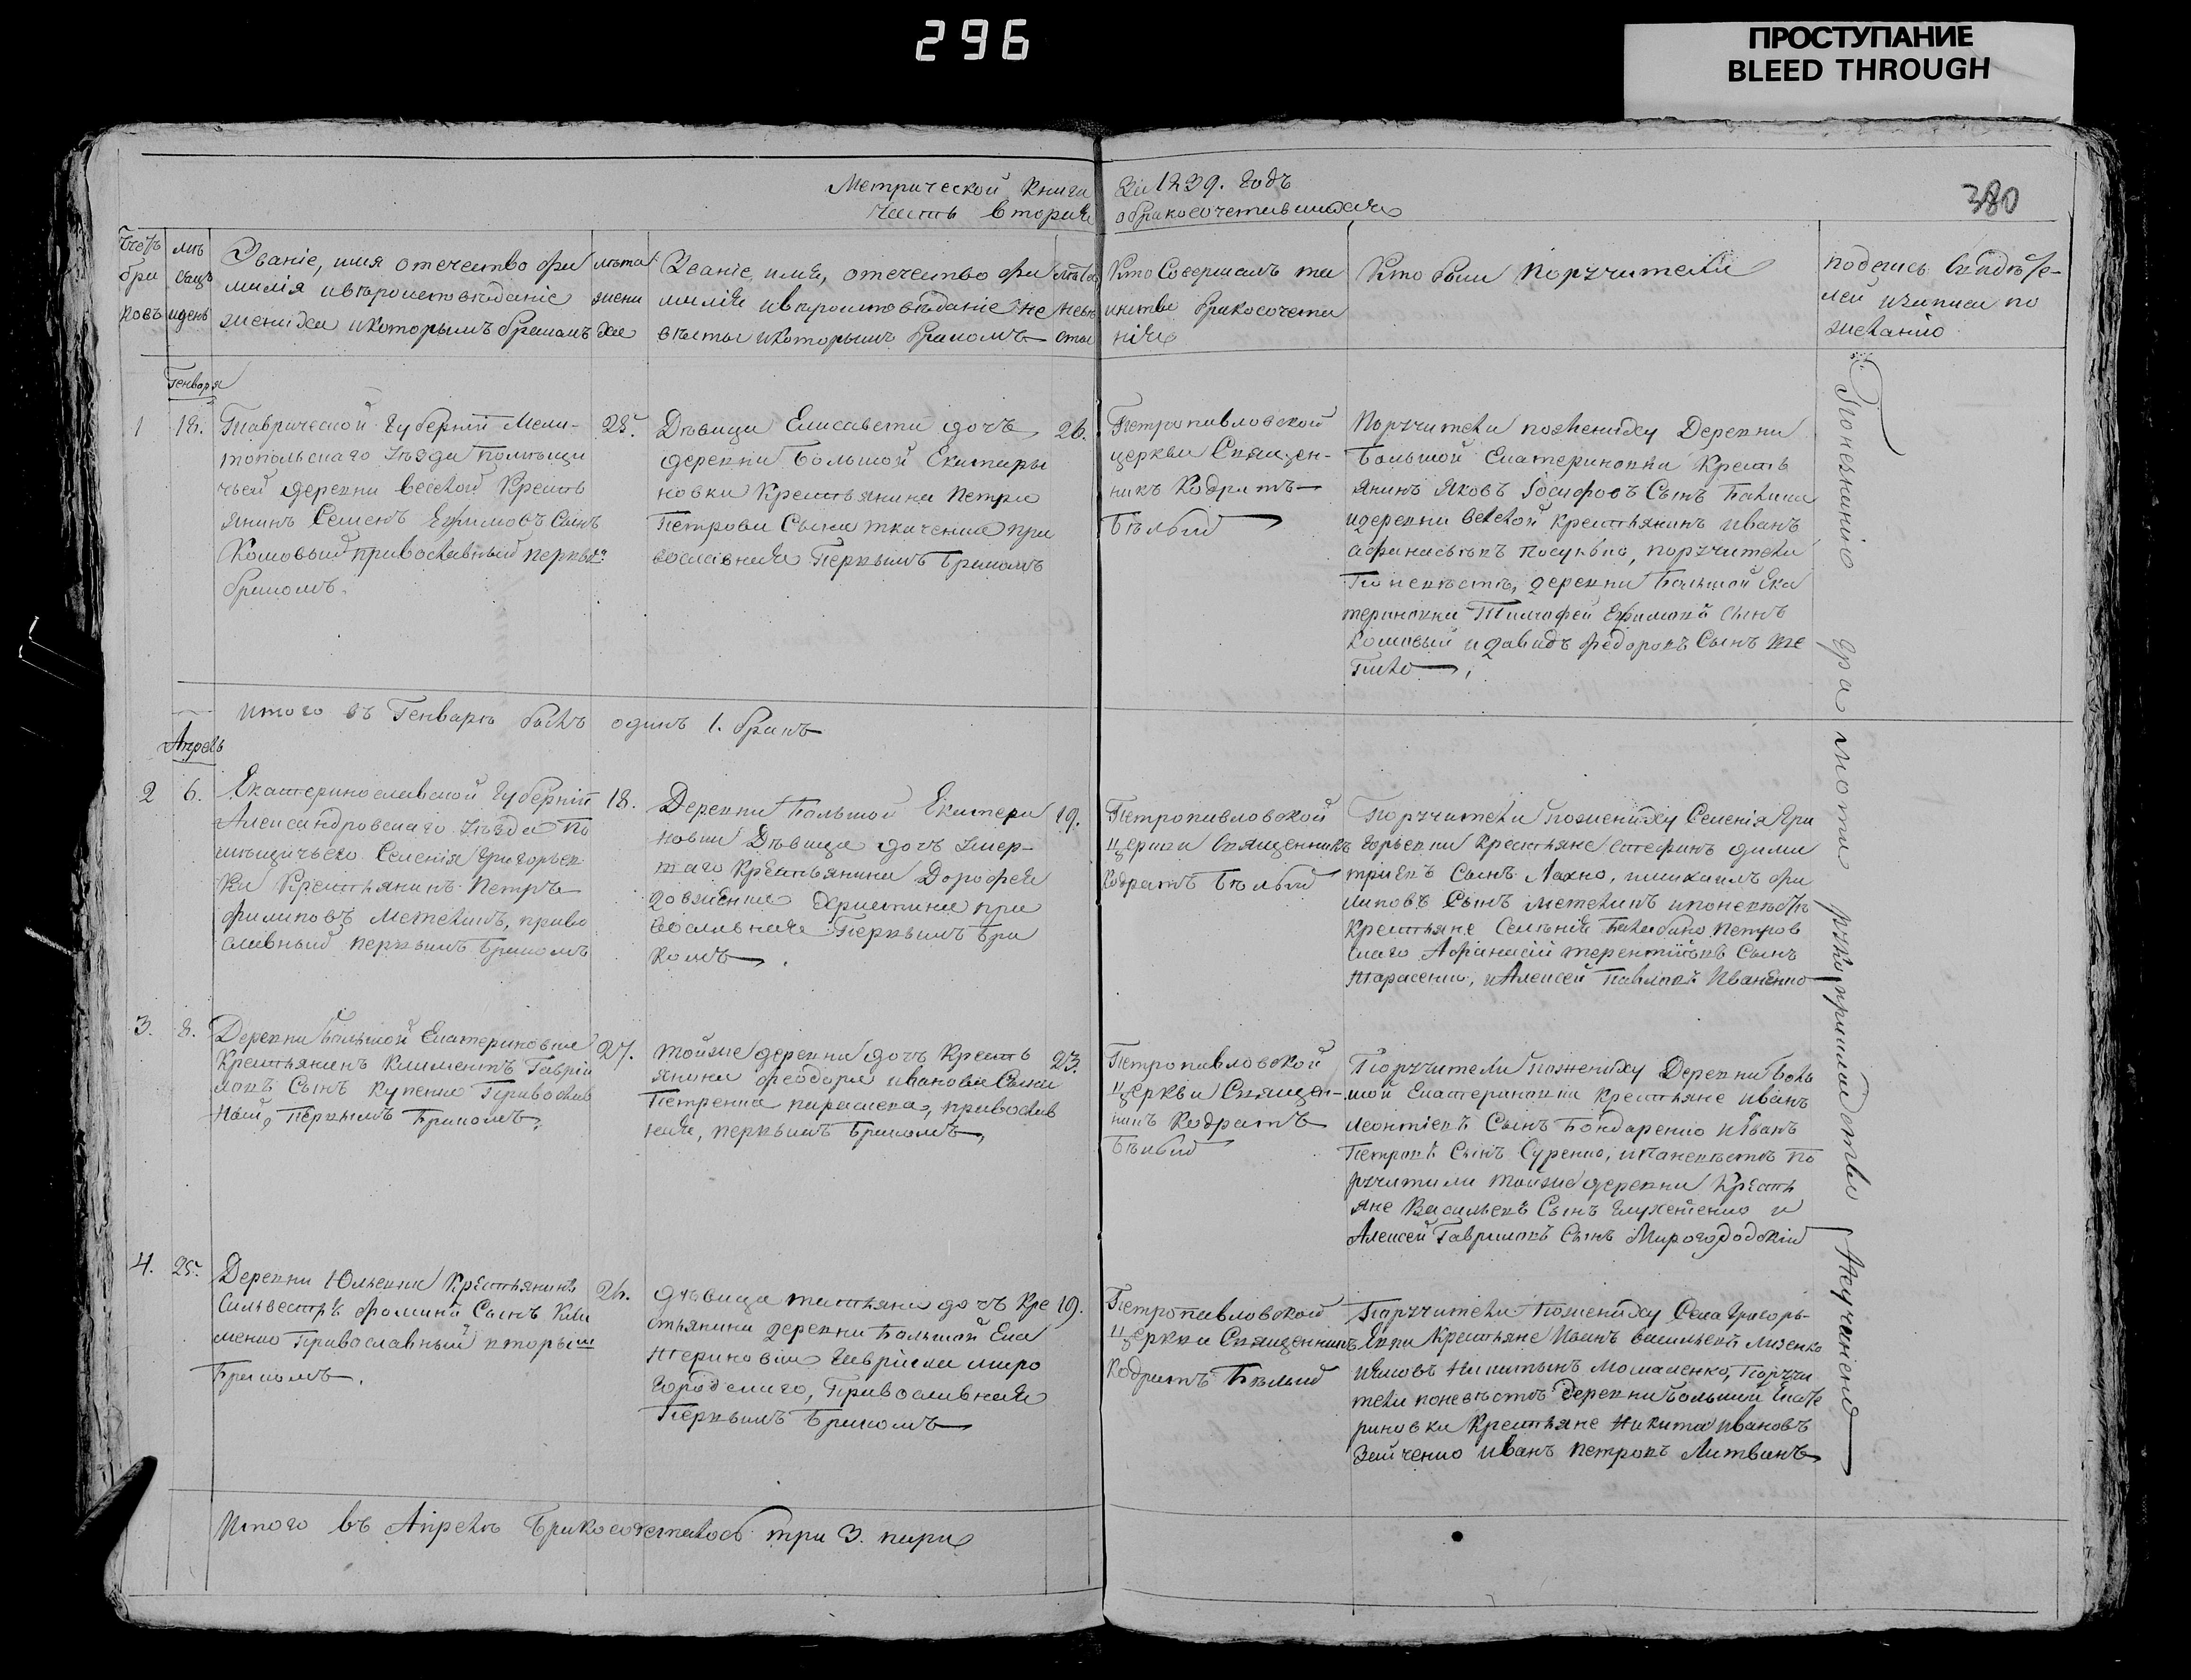 296
ПРОСТУПАНИЕ
BLEED THROUGH
Метрической Книги за 1839. годъ
Часть вторая о бракосочетавшихся
380
Счетъ браковъ
мѣсяцъ и день
Званіе, имя отечество фа
милія и вѣроисповѣданіе
жениха и которымъ бракомъ
лѣта жениха
Званіе, имя, отечество фа
милія и вѣроисповѣданіе не
вѣсты и которымъ бракомъ
лѣта невѣсты
Кто Совершалъ та
инство бракосочета
нія
Кто были Поручители
подпись Свидѣте-
лей и записи по
желанію
Генваря
1
18.
Таврической Губерніи Мели-
топольскаго Уѣзда помѣщи
чьей деревни Веселой Кресть
янинъ Семенъ Ефимовъ Сынъ
Комовый православный первымъ
бракомъ.
25.
Дѣвица Елисавета дочъ
деревни Большой Екатери
новки Крестьянина Петра
Петрова Сына Ткаченка пра
вославная Первымъ Бракомъ
26.
Петропавловской
церкви Священ-
никъ Кодратъ
Бѣлый
Поручители пожениху Деревни
Большой Екатериновки Кресть
янинъ Яковъ Іосифовъ Сынъ
идеревни Веселой крестьянинъ Иванъ
Афанасьевъ поручители
Поневѣстѣ, деревни Большой Ека
териновки Тимофей Ефимовъ Сынъ
Комовый идавидъ Федоровъ Сынъ
Итого въ Генварѣ былъ одинъ 1. бракъ
Апрель
2
6.
Екатеринославской Губерніи
Александровскаго Уѣзда По
мѣщичьего Селенія Григорьев
ки Крестьянинъ Петръ
Филиповъ Метелинъ, право
славный первымъ Бракомъ
18.
Деревни Большой Екатери
новки Дѣвица дочъ Умер-
шаго Крестьянина Дорофея
Довженка Христина пра
вославная Первымъ Бра
комъ.
19.
Петропавловской
церкви Священникъ
Кодратъ Бѣлый
Поручители Пожениху Селенія Гри
горьевки Крестьяне Стефанъ Дими
тріевъ Сынъ Лахно, имихаилъ Фи
липовъ Сынъ Метелинъ ипоневѣстѣ
Крестьяне Селенія Балабино Петров
скаго Афанасій Терентіевъ Сынъ
Тарасенко, иАлексей Павловъ Иваненко
3.
8.
Деревни Большой Екатериновки
Крестьянинъ Климентъ Гаврій
ловъ Сынъ Куценко Православ
ный, Первымъ Бракомъ.
27.
тойже деревни дочъ Кресть
янина Феодора Иванова Сына
Петренка параскева, православ
ная, первымъ Бракомъ,
23.
Петропавловской
Церкви Священ-
никъ Кодратъ
Бѣлый
Поручители Пожениху Деревни Боль
шой Екатериновки Крестьяне Иванъ
Леонтіевъ Сынъ Бондаренко иИванъ
Петровъ Сынъ Суренко, ипоневѣстѣ По
ручители тойже деревни Кресть
яне Васильевъ Сынъ и
Алексей Гавриловъ Сынъ Миргородскій
4.
25.
Деревни Юльевки Крестьянинъ
Сильвестръ Фоминъ Сынъ Кли
менко Православный вторымъ
Бракомъ.
24.
дѣвица татьяна дочъ Кре
стьянина деревни Большой Ека
териновки Гавріила Миро
городскаго, Православная
Первымъ Бракомъ
19.
Петропавловской
Церкви Священникъ
Кодратъ Бѣлый
Поручители Пожениху Села Григорь-
евки Крестьяне Иванъ Васильевъ Лизенко
иЯковъ Никитинъ Момаленко, Поручи
тели поневѣстѣ деревни Большой Екате
риновки Крестьяне Никита Ивановъ
Зайченко Иванъ Петровъ Литвинъ
Итого въ Апрелѣ Бракосочеталось три 3. пары